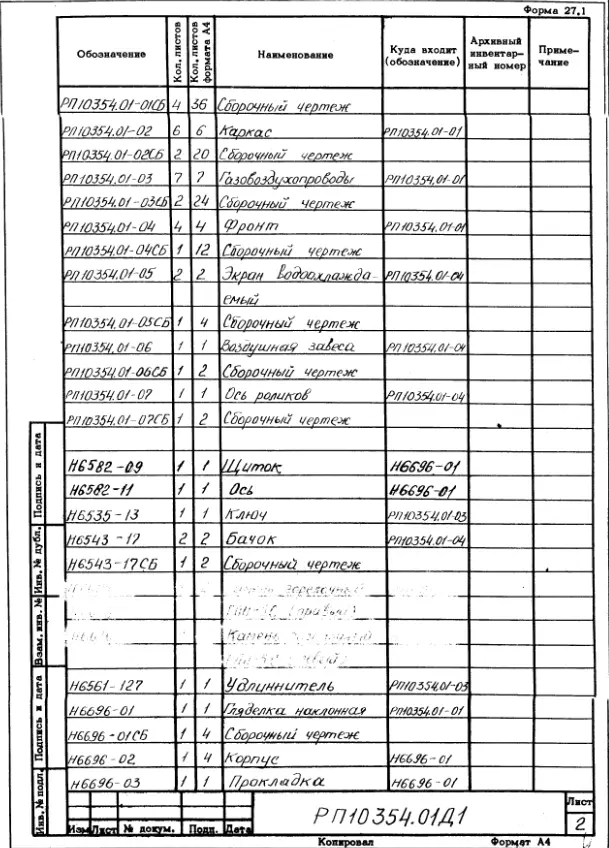 Форма 27.1
Обозначение Кол. листов Кол. листов формата А4 Наименование Куда входит (обозначение) Архивный инвентар-ный номер Приме-чание
РП10354.01-01СБ 4 36 Сборочный чертеж
РП10354.01-02 6 6 Каркас РП10354.01-01
РП10354.01-02СБ 2 20 Сборочный чертеж
РП10354.01-03 7 7 Газовоздухопроводы РП10354.01-01
РП10354.01-03СБ 2 24 Сборочный чертеж
РП10354.01-04 4 4 Фронт РП10354.01-01
РП10354.01-04СБ 1 12 Сборочный чертеж
РП10354.01-05 2 2 Экран водоохлажда- РП10354.01-04
емый
РП10354.01-05СБ 1 4 Сборочный чертеж
РП10354.01-06 1 1 Воздушная завеса РП10354.01-04
РП10354.01-06СБ 1 2 Сборочный чертеж
РП10354.01-07 1 1 Ось роликов РП10354.01-04
РП10354.01-07СБ 1 2 Сборочный чертеж
Н6582-09 1 1 Щиток Н6696-01
Н6582-11 1 1 Ось Н6696-01
Н6535-13 1 1 Ключ РП10354.01-03
Н6543-17 2 2 Бачок РП10354.01-04
Н6543-17СБ 1 2 Сборочный чертеж
Камень
Н6561-127 1 1 Удлиннитель РП10354.01-03
Н6696-01 1 1 Гляделка наклонная РП10354.01-01
Н6696-01СБ 1 4 Сборочный чертеж
Н6696-02 1 4 Корпус Н6696-01
Н6696-03 1 1 Прокладка Н6696-01
Инв. № подл. Подпись и дата Взам. инв. № Инв. № дубл. Подпись и дата
РП10354.01Д1
Лист
2
Изм Лист № докум. Подп. Дата
Копировал Формат А4